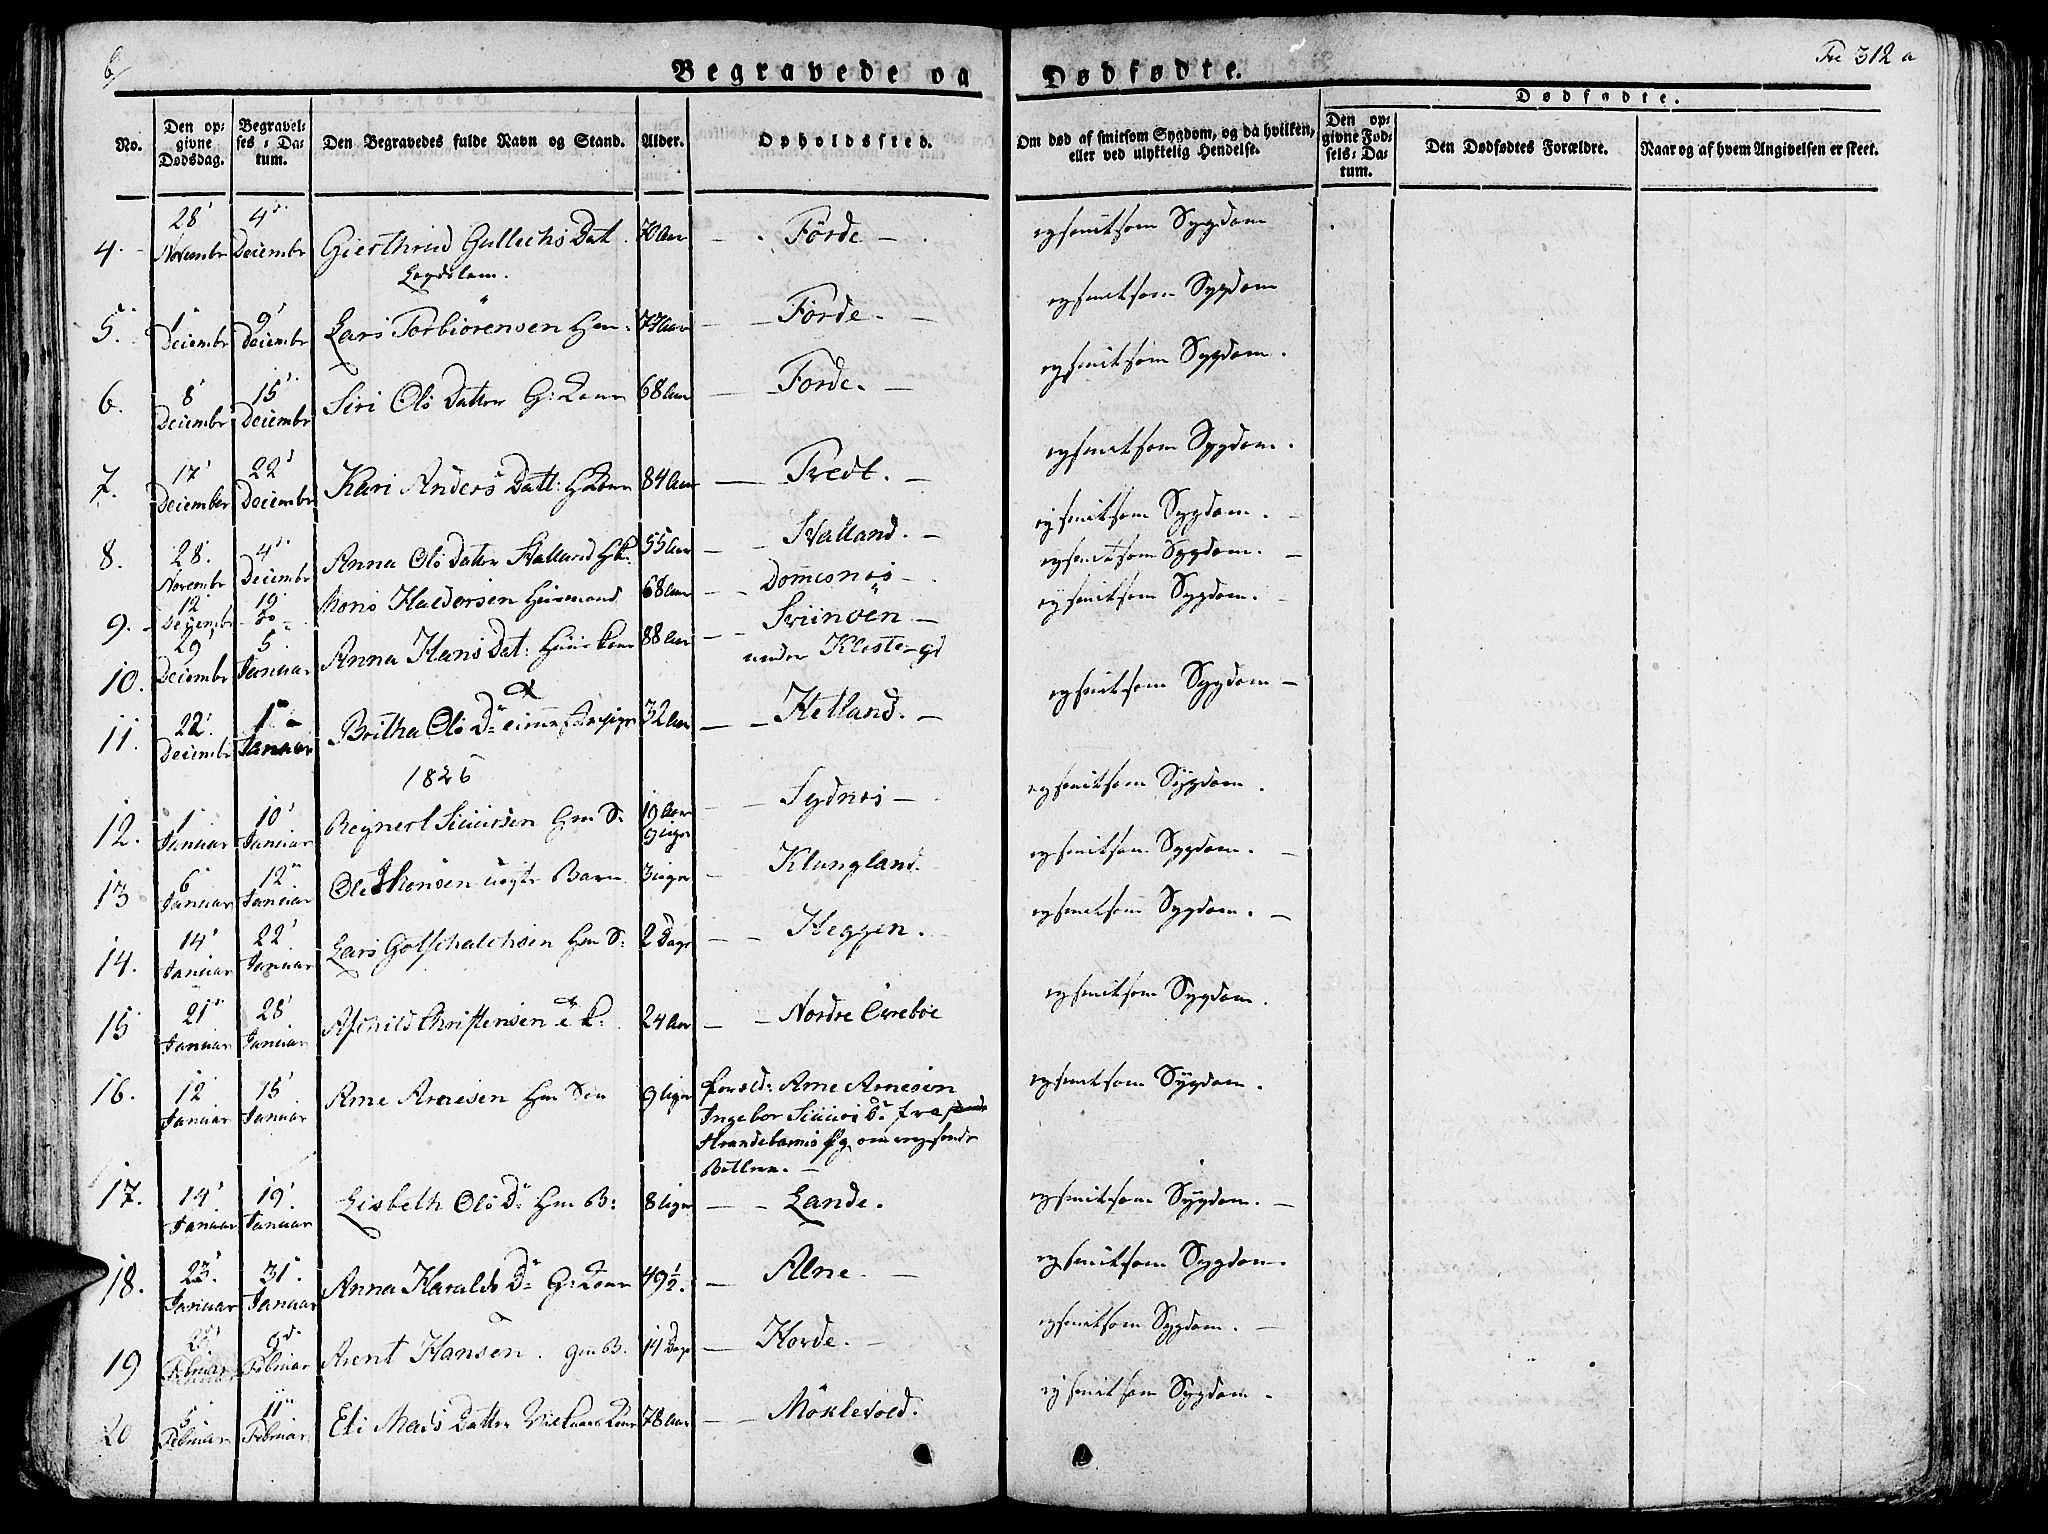 6/
Begravede og
Dødfødte.
Fol 312 a
No.
Den op-
givne
Dødsdag.
Begravel-
ses-Da-
tum.
Den Begravedes fulde Navn og Stand.
Alder.
Opholdssted.
Om død af smitsom Sygdom, og da hvilken,
eller ved ulykkelig Hendelse.
Dødfødte.
Den op-
givne Fød-
sels-Da-
tum.
Den Dødfødtes Forældre.
Naar og af hvem Angivelsen er skeet.
4. 28 November 4 December Gierthrud Gullechs Dat 70 Aar Förde ey smitsom Sygdom
Legdslem.
5. 1 December 9 December Lars Torbiörensen 77 Aar Förde ey smitsom Sygdom
6. 8 December 15 December Siri Ols Datter G: Kone 68 Aar Förde. ey smitsom Sygdom.
7. 17 December 22 December Kari Anders Datt: 84 Aar Tvedt. ey smitsom Sygdom.
8. 28. November 4 December Anna Ols Datter Stalland 55 Aar Stalland. ey smitsom Sygdom.
9. 12 December 19 Do Mons Haldorsen Huusmand 68 Aar Domesnes ey smitsom Sygdom.
10. 29 December 5 Januar Anna Hans Dat: Huuskone 88 Aar ey smitsom Sygdom.
under
11. 22. December 1 Januar Britha Ols Dr 32 Aar Hetland. ey smitsom Sygdom
1826
12. 1 Januar 10 Januar Regnert Siursen Gm S: 19 Aar Sydnes ey smitsom Sygdom.
9 uger
13 6 Januar 12 Januar uægte Barn 3 uger Klungland. ey smitsom Sygdom.
14. 14 Januar 22 Januar Lars Gotschalchsen Gm S: 2 Dage Heggen. ey smitsom Sygdom.
15 21 Januar 28 Januar Christensen 24 Aar Nordre ey smitsom Sygdom.
16. 12 Januar 15 Januar Arne Arnesen 9 uger foreld: Arne Arnesen ey smitsom Sygdom.
Ingebor Siurs Dr fra
Strandebarms
17. 14 Januar 19 Januar Lisbeth Ols Dr Gm B: 8 uger Lande. ey smitsom Sygdom.
18. 23. Januar 31. Januar Anna Haralds Dr G: Kone 49½. Alne. ey smitsom Sygdom.
19 Februar 9 Februar Arent Hansen. Gm B. 14 Dage Horde. ey smitsom Sygdom.
20 5 Februar 11 Februar Eli Mads Datter 78 Aar Möklevold. ey smitsom Sygdom.